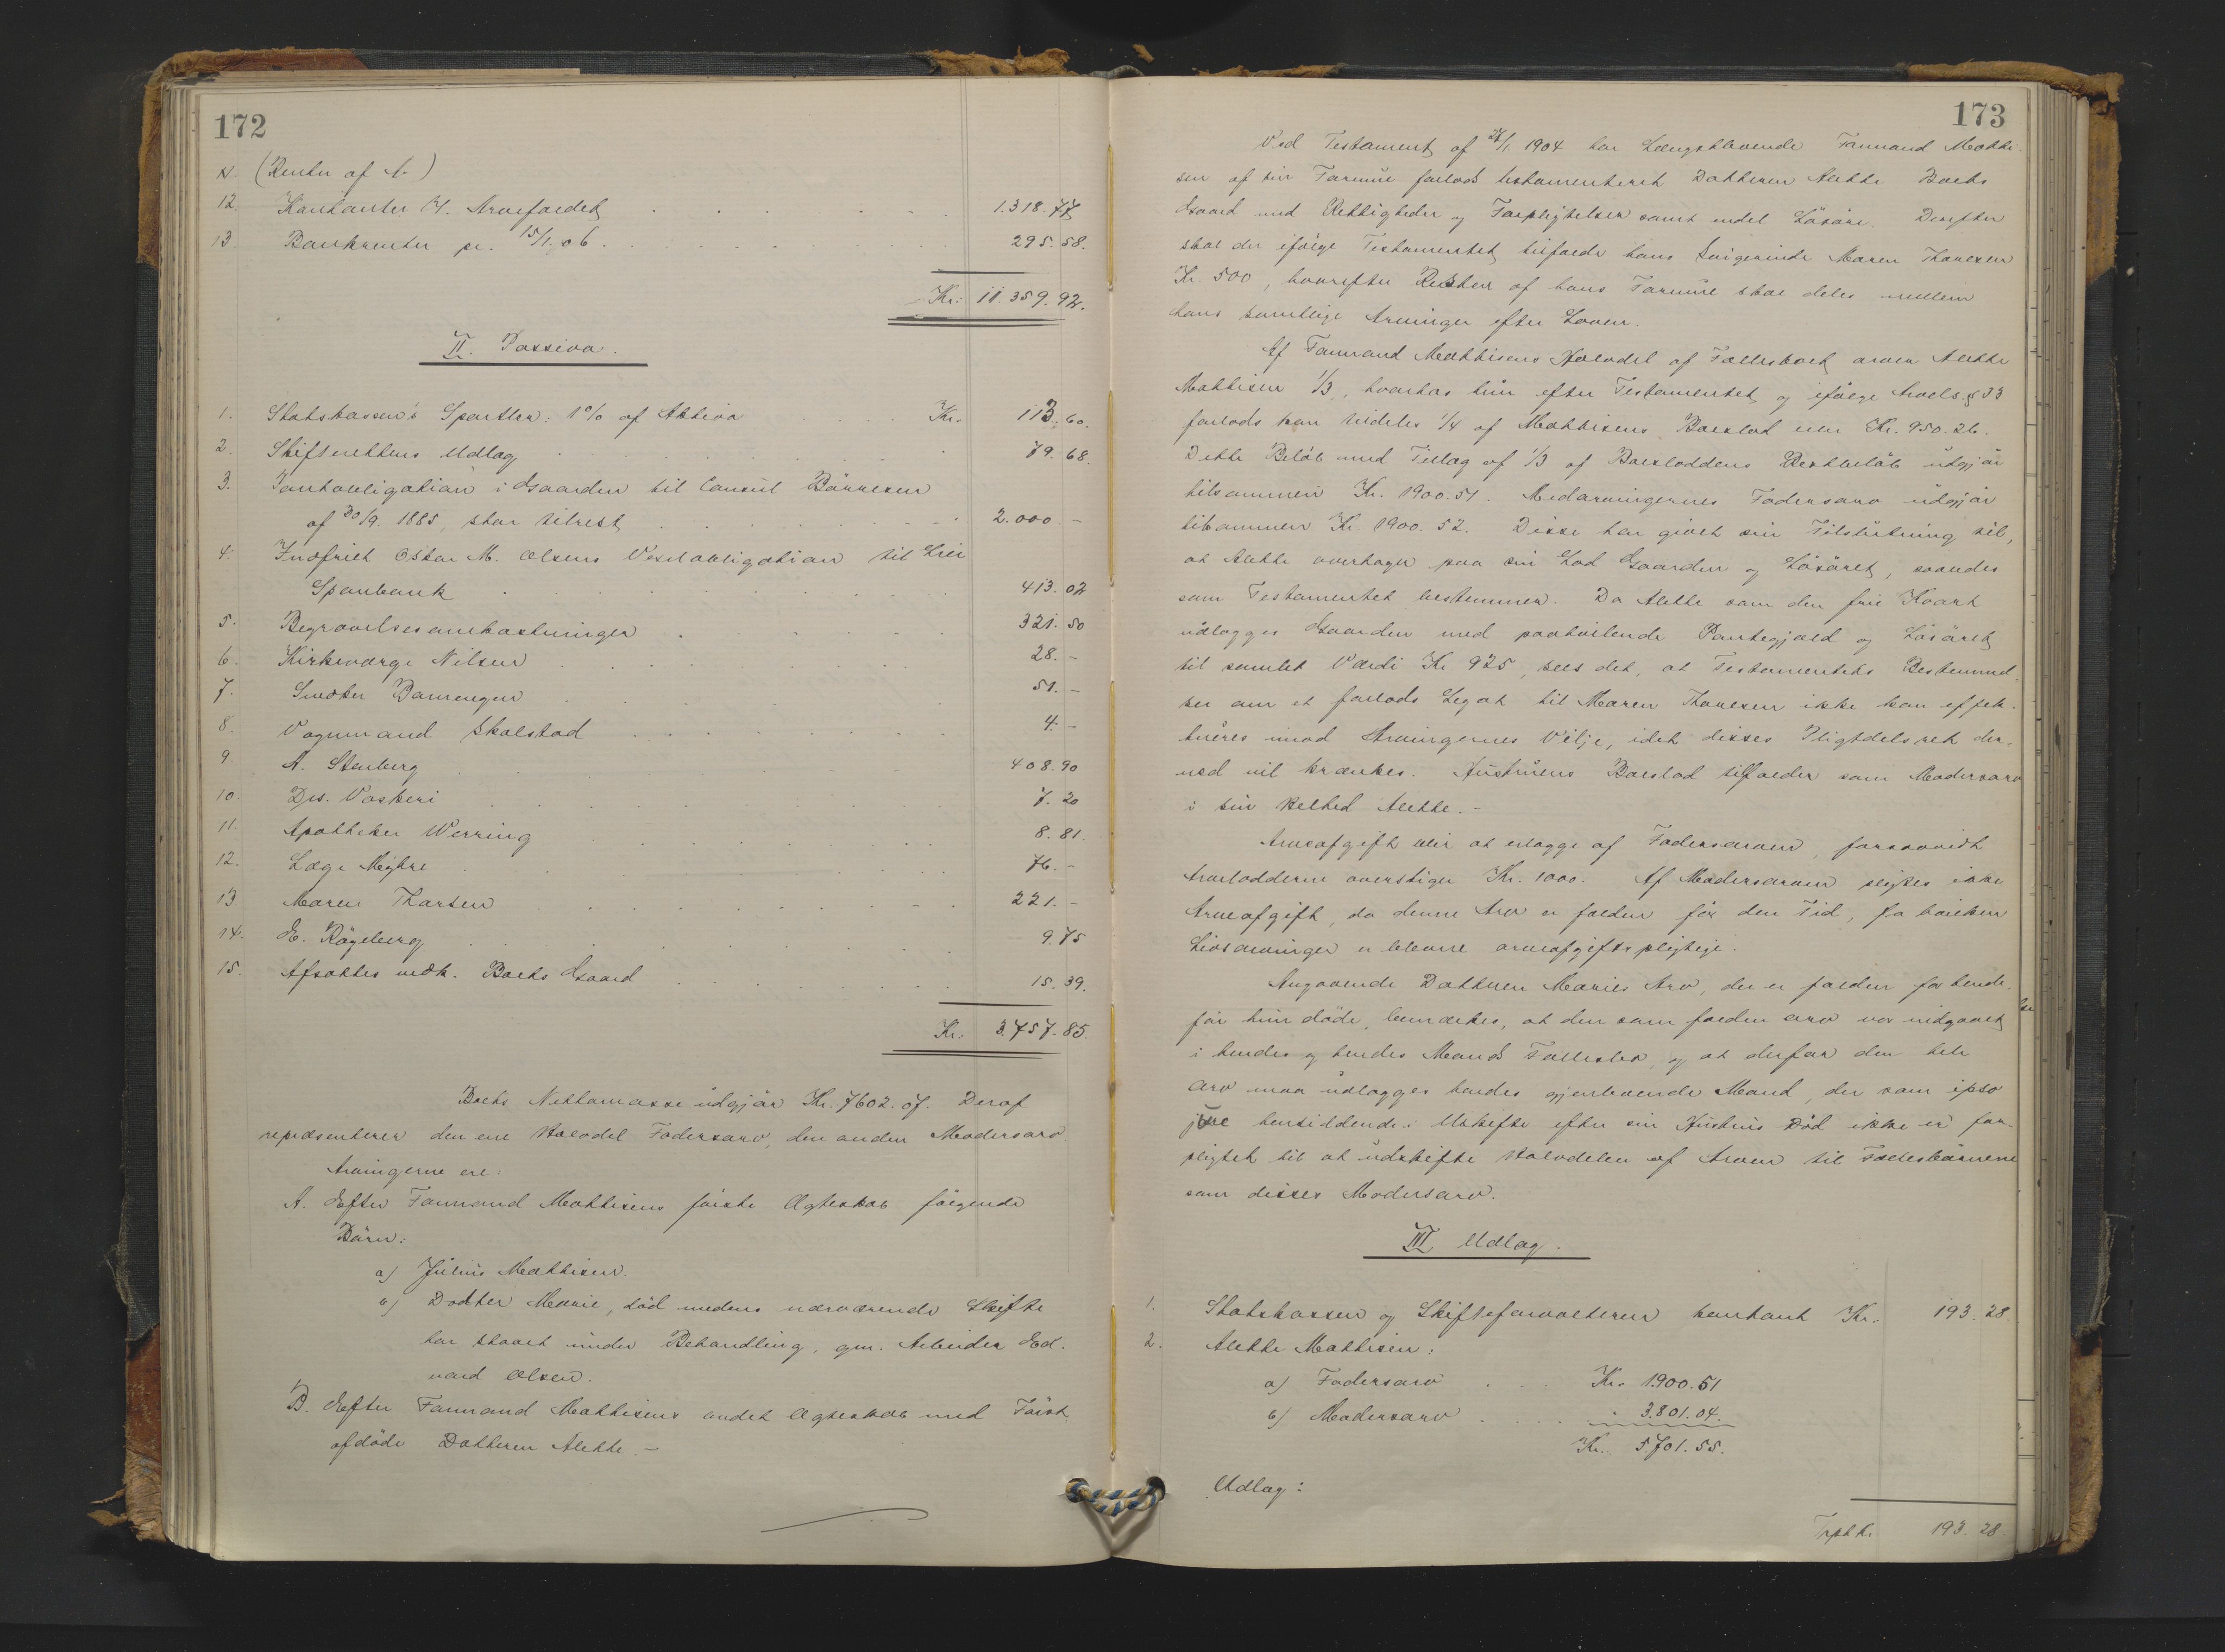 172
N. (Renter af A.)
12. Kontanter v/. Arvefaldet . . . 1.318.77
13. Bankrenter pr. 15/1. 06. . . . 295.58.
Kr: 11.359.92.
II. Passiva.
1. Statskassen's Sportler: 1% af Aktiva . . Kr. 113.60.
2. Skifterettens Udlæg . . . 79.68.
3. Pantobligation i Gaarden til Consul Börresen
af 30/9. 1885, stor tilrest . . . 2.000 -
4. Indfriet Oskar M. Olsens Vexelobligation til Lier
Sparebank . . . 413.02
5. Begravelsesomkostninger . . . 321.50
6. Kirkeværge Nilsen . . . 28.-
7. Snedker Damengen . . . 51.-
8. Vognmand Skalstad . . . 4.-
9. A. Stenberg . . . 408.90
10. Drs. Vaskeri . . . 7.20
11. Apotheker Werring . . . 8.81.
12. Læge Myhre . . . 76.-
13. Maren Thorsen . . . 221.-
14. E. Rögeberg . . . 9.75
15. Afsættes vedk. Boets Gaard . . . 15.39.
Kr: 3.757.85.
Boets Nettomasse udgjör Kr. 7602.07. Deraf
repræsenterer den ene Halvdel Fadersarv, den anden Modersarv.
Arvingerne ere:
A. Efter Formand Mathisens förste Ægteskab fölgende
Börn:
a) Julius Mathisen.
b) Datter Marie, död medens nærværende Skifte
har staaet under Behandling, gm. Arbeider Ed-
vard Olsen.
B. Efter Formand Mathisens andet Ægteskab med Först-
afdöde Datteren Alethe. -
173
Ved Testament af 27/1 1904 har Længstlevende Formand Mathi-
sen af sin Formue forlods testamenteret Datteren Alethe Boets
Gaard med Rettigheder og Forpligtelser samt endel Lösöre. Derefter
skal der ifölge Testamentet tilfalde hans Svigerinde Maren Thoresen
Kr. 500, hvorefter Resten af hans Formue skal deles mellem
hans samtlige Arvinger efter Loven.
Af Formand Mathisens Halvdel af Fællesboet arver Alethe
Mathisen 1/3, hvorhos hun efter Testamentet og ifölge Arvels. § 33
forlods kan tildeles 1/4 af Mathisens Boeslod eller Kr. 950.26.
Dette Belöb med Tillæg af 1/3 af Boesloddens Restbelöb udgjör
tilsammen Kr. 1900.51. Medarvingernes Fadersarv udgjör
tilsammen Kr. 1900.52. Disse har givet sin Tilslutning til,
at Alethe overtager paa sin Lod Gaarden og Lösöret, saaledes
som Testamentet bestemmer. Da Alethe som den frie Kvart
udlægges Gaarden med paahvilende Pantegjæld og Lösöret
til samlet Værdi Kr. 925, sees det, at Testamentets Bestemmel-
ser om et forlods Legat til Maren Thoresen ikke kan effek-
tueres imod Arvingernes Vilje, idet disses Pligtdelsret der-
ved vil krænkes. Hustruens Boeslod tilfalder som Modersarv
i sin Helhed Alethe. -
Arveafgift blir at erlægge af Fadersarven, forsaavidt
Arvelodderne overstiger Kr. 1000. Af Modersarven svares ikke
Arveafgift, da denne Arv er falden för den Tid, fra hvilken
Livsarvinger er blevne arveafgiftspligtige.
Angaaende Datteren Maries Arv, der er falden för hende,
för hun döde, bemærkes, at den som falden arv var indgaaet
i hendes og hendes Mands Fælleslev, og at derfor den hele
arv maa udlægges hendes gjenlevende Mand, der som ipso
jure hensiddende i Uskifte efter sin Hustrus Död ikke er for-
pligtet til at udskifte Halvdelen af Arven til Fællesbörnene
som disses Modersarv.
III. Udlæg.
1. Statskassen og Skifteforvalteren kontant Kr. 193.28.
2. Alethe Mathisen:
a) Fadersarv . . . Kr. 1900.51
b) Modersarv . . . " 3.801.04.
Kr. 5.701.55.
Udlæg:
Trpt. Kr. 193.28.